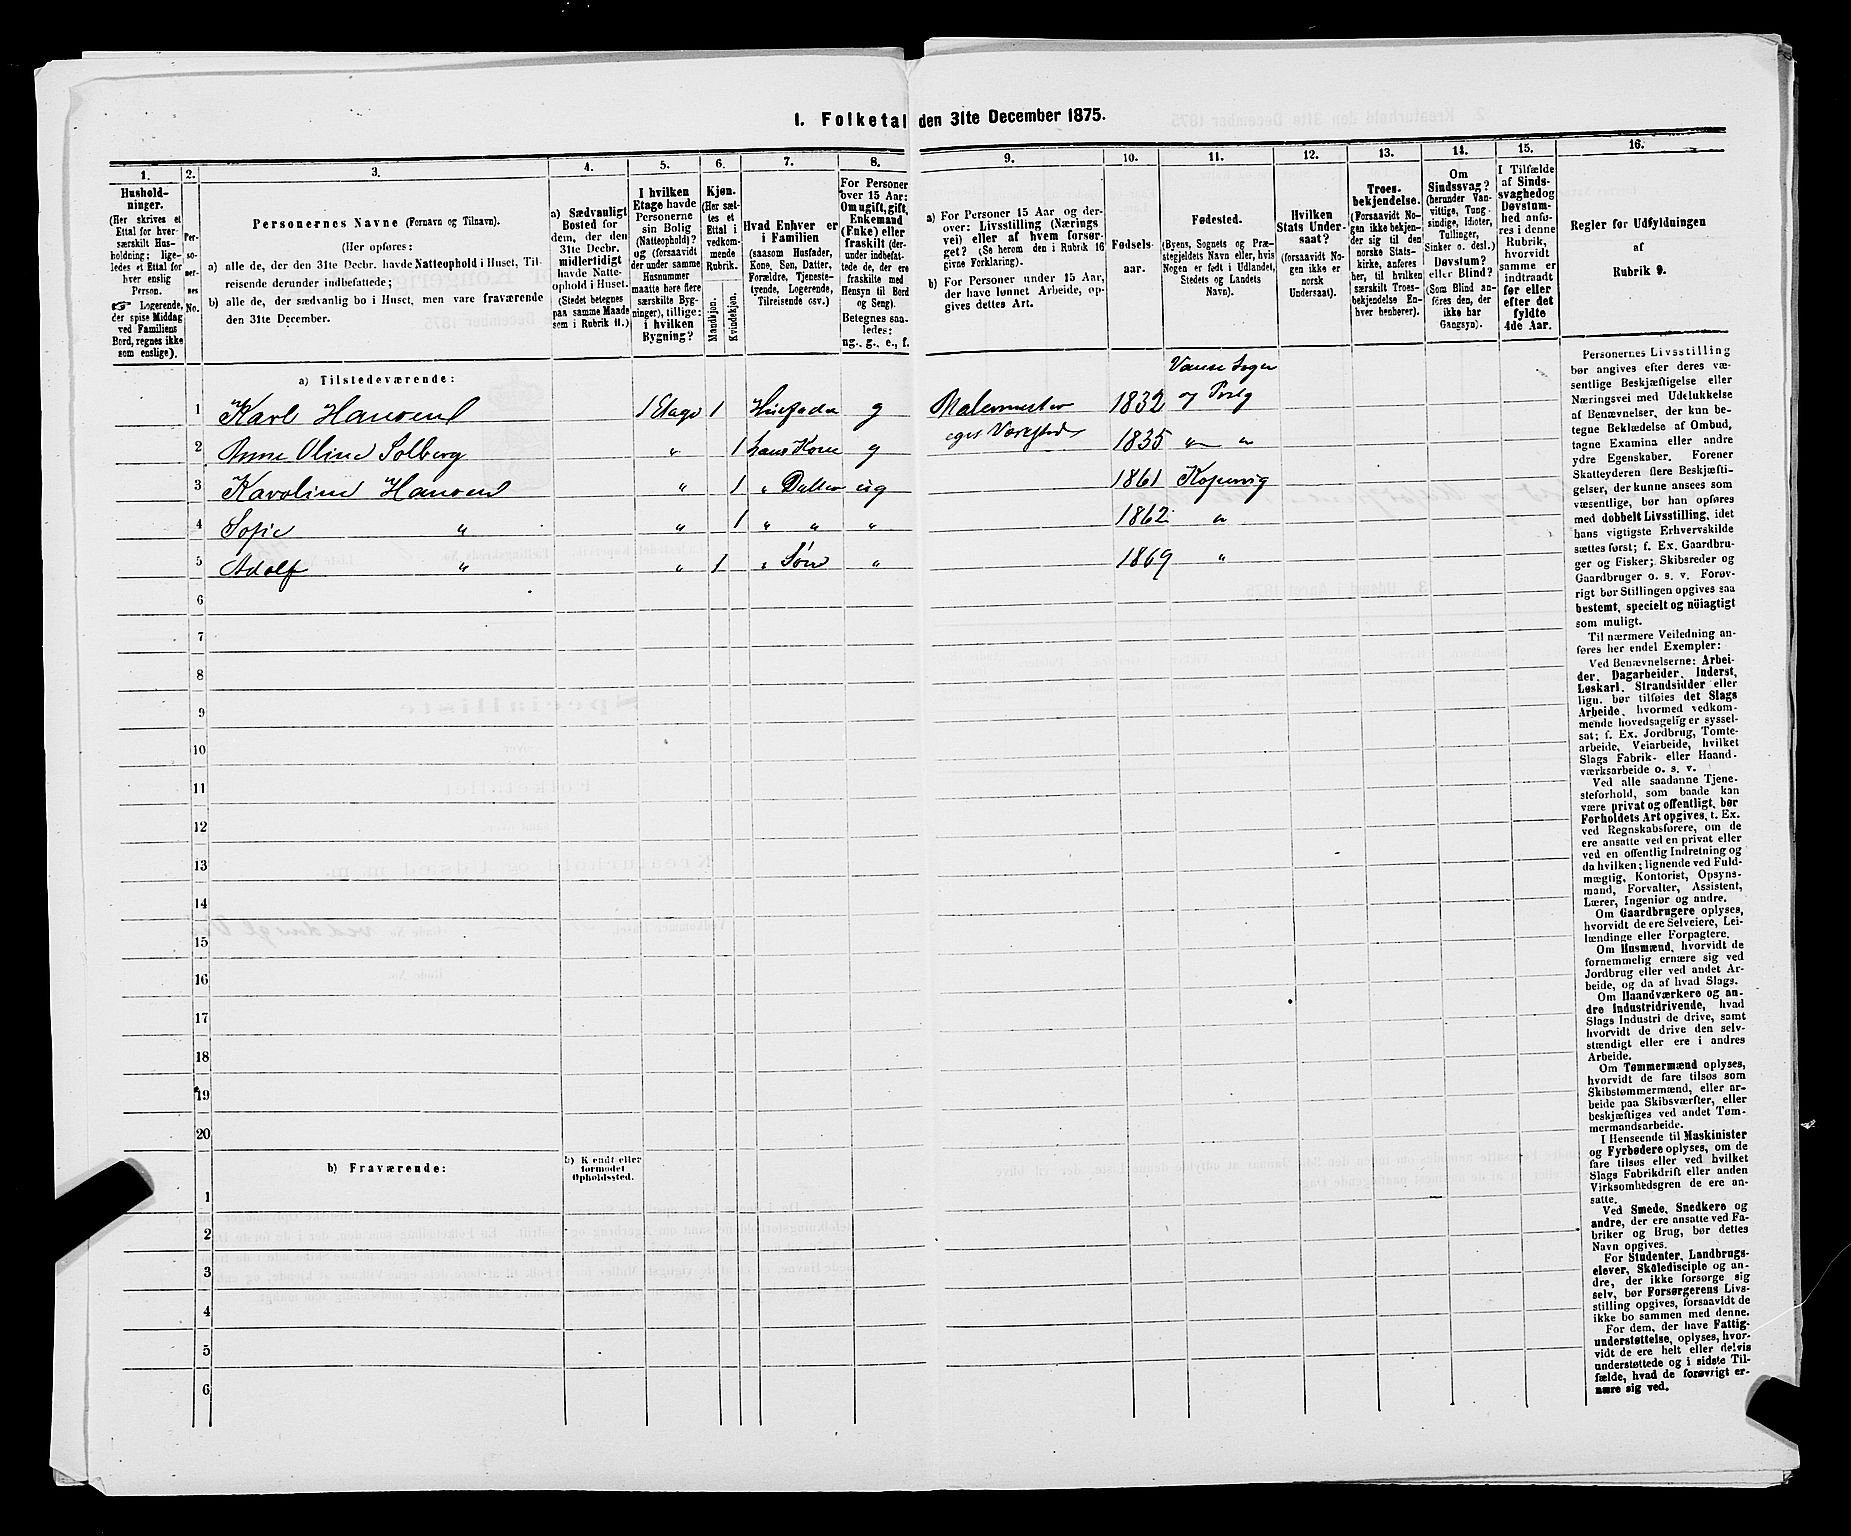 1. Folketal den 31te December 1875.
1. 2. 3. 4. 5. 6. 7. 8. 9. 10. 11. 12. 13. 14. 15. 16.
Hushold-
ninger.
(Her skrives et
Ettal for hver
særskilt Hus-
holdning; lige-
ledes et Ettal for
hver enslig
Person.
☞ Logerende,
der spise Middag
ved Familiens
Bord, regnes ikke
som enslige).
Per-
so-
ner-
nes
No.
Personernes Navne (Fornavn og Tilnavn).
(Her opføres:
a) alle de, der den 31te Decbr. havde Natteophold i Huset, Til-
reisende derunder indbefattede;
b) alle de, der sædvanlig bo i Huset, men vare fraværende
den 31te December.
a) Sædvanligt
Bosted for
dem, der den
31te Decbr.
midlertidigt
havde Natte-
ophold i Huset.
(Stedet betegnes
paa samme Maade
som i Rubrik 11.)
I hvilken
Etage havde
Personerne
sin Bolig
(Natteophold)?
og (forsaavidt
der under samme
Husnummer
maatte høre flere
særskilte Byg-
ninger), tillige:
i hvilken
Bygning?
Kjøn.
(Her sæt-
tes et
Ettal i
vedkom-
mende
Rubrik.
Mandkjøn.
Kvindekjøn.
Hvad Enhver er
i Familien
(saasom Husfader,
Kone, Søn, Datter,
Forældre, Tjeneste-
tyende, Logerende,
Tilreisende osv.)
For Personer
over 15 Aar:
Om ugift, gift,
Enkemand
(Enke) eller
fraskilt (der-
under indbefat-
tede de, der ere
fraskilte med
Hensyn til Bord
og Seng).
Betegnes saa-
ledes:
ug., g., e., f.
a) For Personer 15 Aar og der-
over: Livsstilling (Nærings
vei) eller af hvem forsør-
get? (Se herom den i Rubrik 16
givne Forklaring).
b) For Personer under 15 Aar,
der have lønnet Arbeide, op-
gives dettes Art.
Fødsels-
aar.
Fødested.
(Byens, Sognets og Præ-
stegjeldets Navn eller, hvis
Nogen er født i Udlandet,
Stedets og Landets
Navn).
Hvilken
Stats Under-
saat?
(forsaavidt No-
gen ikke er
norsk
Undersaat).
Troes-
bekjendelse.
(Forsaavidt No-
gen ikke bekjen-
der sig til den
norske Stats-
kirke, anføres
her, til hvilken
særskilt Troes-
bekjendelse En-
hver henhører).
Om
Sindssvag?
(herunder Van-
vittige, Tung-
sindige, Idioter,
Tullinger,
Sinker o. desl.)
Døvstum?
eller Blind?
(Som Blind an-
føres den, der
ikke har
Gangsyn).
I Tilfælde
af Sinds-
svaghed og
Døvstum-
hed anfø-
res i denne
Rubrik,
hvorvidt
samme er
indtraadt
før eller
efter det
fyldte
4de Aar.
Regler for Udfyldningen
af
Rubrik 9.
a) Tilstedeværende:
1 Karl Hansen 1 Etage 1 Husfader g Malermester 1832 Vanse Sogn
og Prstg
2 Anne Oline Solberg " 1 hans Kone g eget Værksted 1835 " "
3 Karoline Hansen " 1 " Datter ug 1861 Kopervig
4 Sofie " " 1 " " " 1862 "
5 Adolf " " 1 " Søn " 1869 "
6
7
8
9
10
11
12
13
14
15
16
17
18
19
20
b) Fraværende: b) Kjendt eller
formodet
Opholdssted.
1
2
3
4
5
6
Personernes Livsstilling
bør angives efter deres væ-
sentlige Beskjæftigelse eller
Næringsvei med Udelukkelse
af Benævnelser, der kun be-
tegne Beklædelse af Ombud,
tagne Examina eller andre
ydre Egenskaber. Forener
Skatteyderen flere Beskjæfti-
gelser, der kunne ansees som
væsentlige, bør han opføres
med dobbelt Livsstilling, idet
hans vigtigste Erhvervskilde
sættes først; f. Ex. Gaardbru-
ger og Fisker; Skibsreder og
Gaardbruger o. s. v. Forøv-
rigt bør Stillingen opgives saa
bestemt, specielt og nöiagtigt
som muligt.
Til nærmere Veiledning an-
føres her endel Exempler:
Ved Benævnelserne: Arbei-
der, Dagarbeider, Inderst,
Løskarl, Strandsidder eller
lign. bør tilføies det Slags
Arbeide, hvormed vedkom-
mende hovedsagelig er syssel-
sat; f. Ex. Jordbrug, Tomte-
arbeide, Veiarbeide, hvilket
Slags Fabrik- eller Haand-
værksarbeide o. s. v.
Ved alle saadanne Tjene-
steforhold, som baade kan
være privat og offentligt, bør
Forholdets Art opgives, t. Ex.
ved Regnskabsførere, om de
ere ansatte ved en privat eller
ved en offentlig Indretning og
da hvilken; lignende ved Fuld-
mægtig, Kontorist, Opsyns-
mand, Forvalter, Assistent,
Lærer, Ingeniør og andre.
Om Gaardbrugere oplyses,
hvorvidt de ere Selveiere, Lei-
lændinge eller Forpagtere.
Om Husmænd, hvorvidt de
fornemmelig ernære sig ved
Jordbrug eller ved andet Ar-
beide, og da af hvad Slags.
Om Haandværkere og an-
dre Industridrivende, hvad
Slags Industri de drive, samt
hvorvidt de drive den selv-
stændigt eller ere i andres
Arbeide.
Om Tømmermænd oplyses,
hvorvidt de fare tilsøs som
Skibstømmermænd, eller ar-
beide paa Skibsværfter, eller
beskjæftiges ved andet Tøm-
mermandsarbeide.
I Henseende til Maskinister
og Fyrbødere oplyses, om de
fare tilsøs eller ved hvilket
Slags Fabrikdrift eller anden
Virksomhedsgren de ere an-
satte.
Ved Smede, Snedkere og
andre, der ere ansatte ved Fa-
briker og Brug, bør dettes
Navn opgives.
For Studenter, Landbrugs-
elever, Skoledisciple og an-
dre, der ikke forsørge sig
selv, bør Forsørgerens Livs-
stilling opgives, forsaavidt de
ikke bo sammen med denne.
For dem, der have Fattig-
understøttelse, oplyses, hvor-
vidt de ere helt eller delvis
understøttede og i sidste Til-
fælde, hvad de forøvrigt er-
nære sig ved.